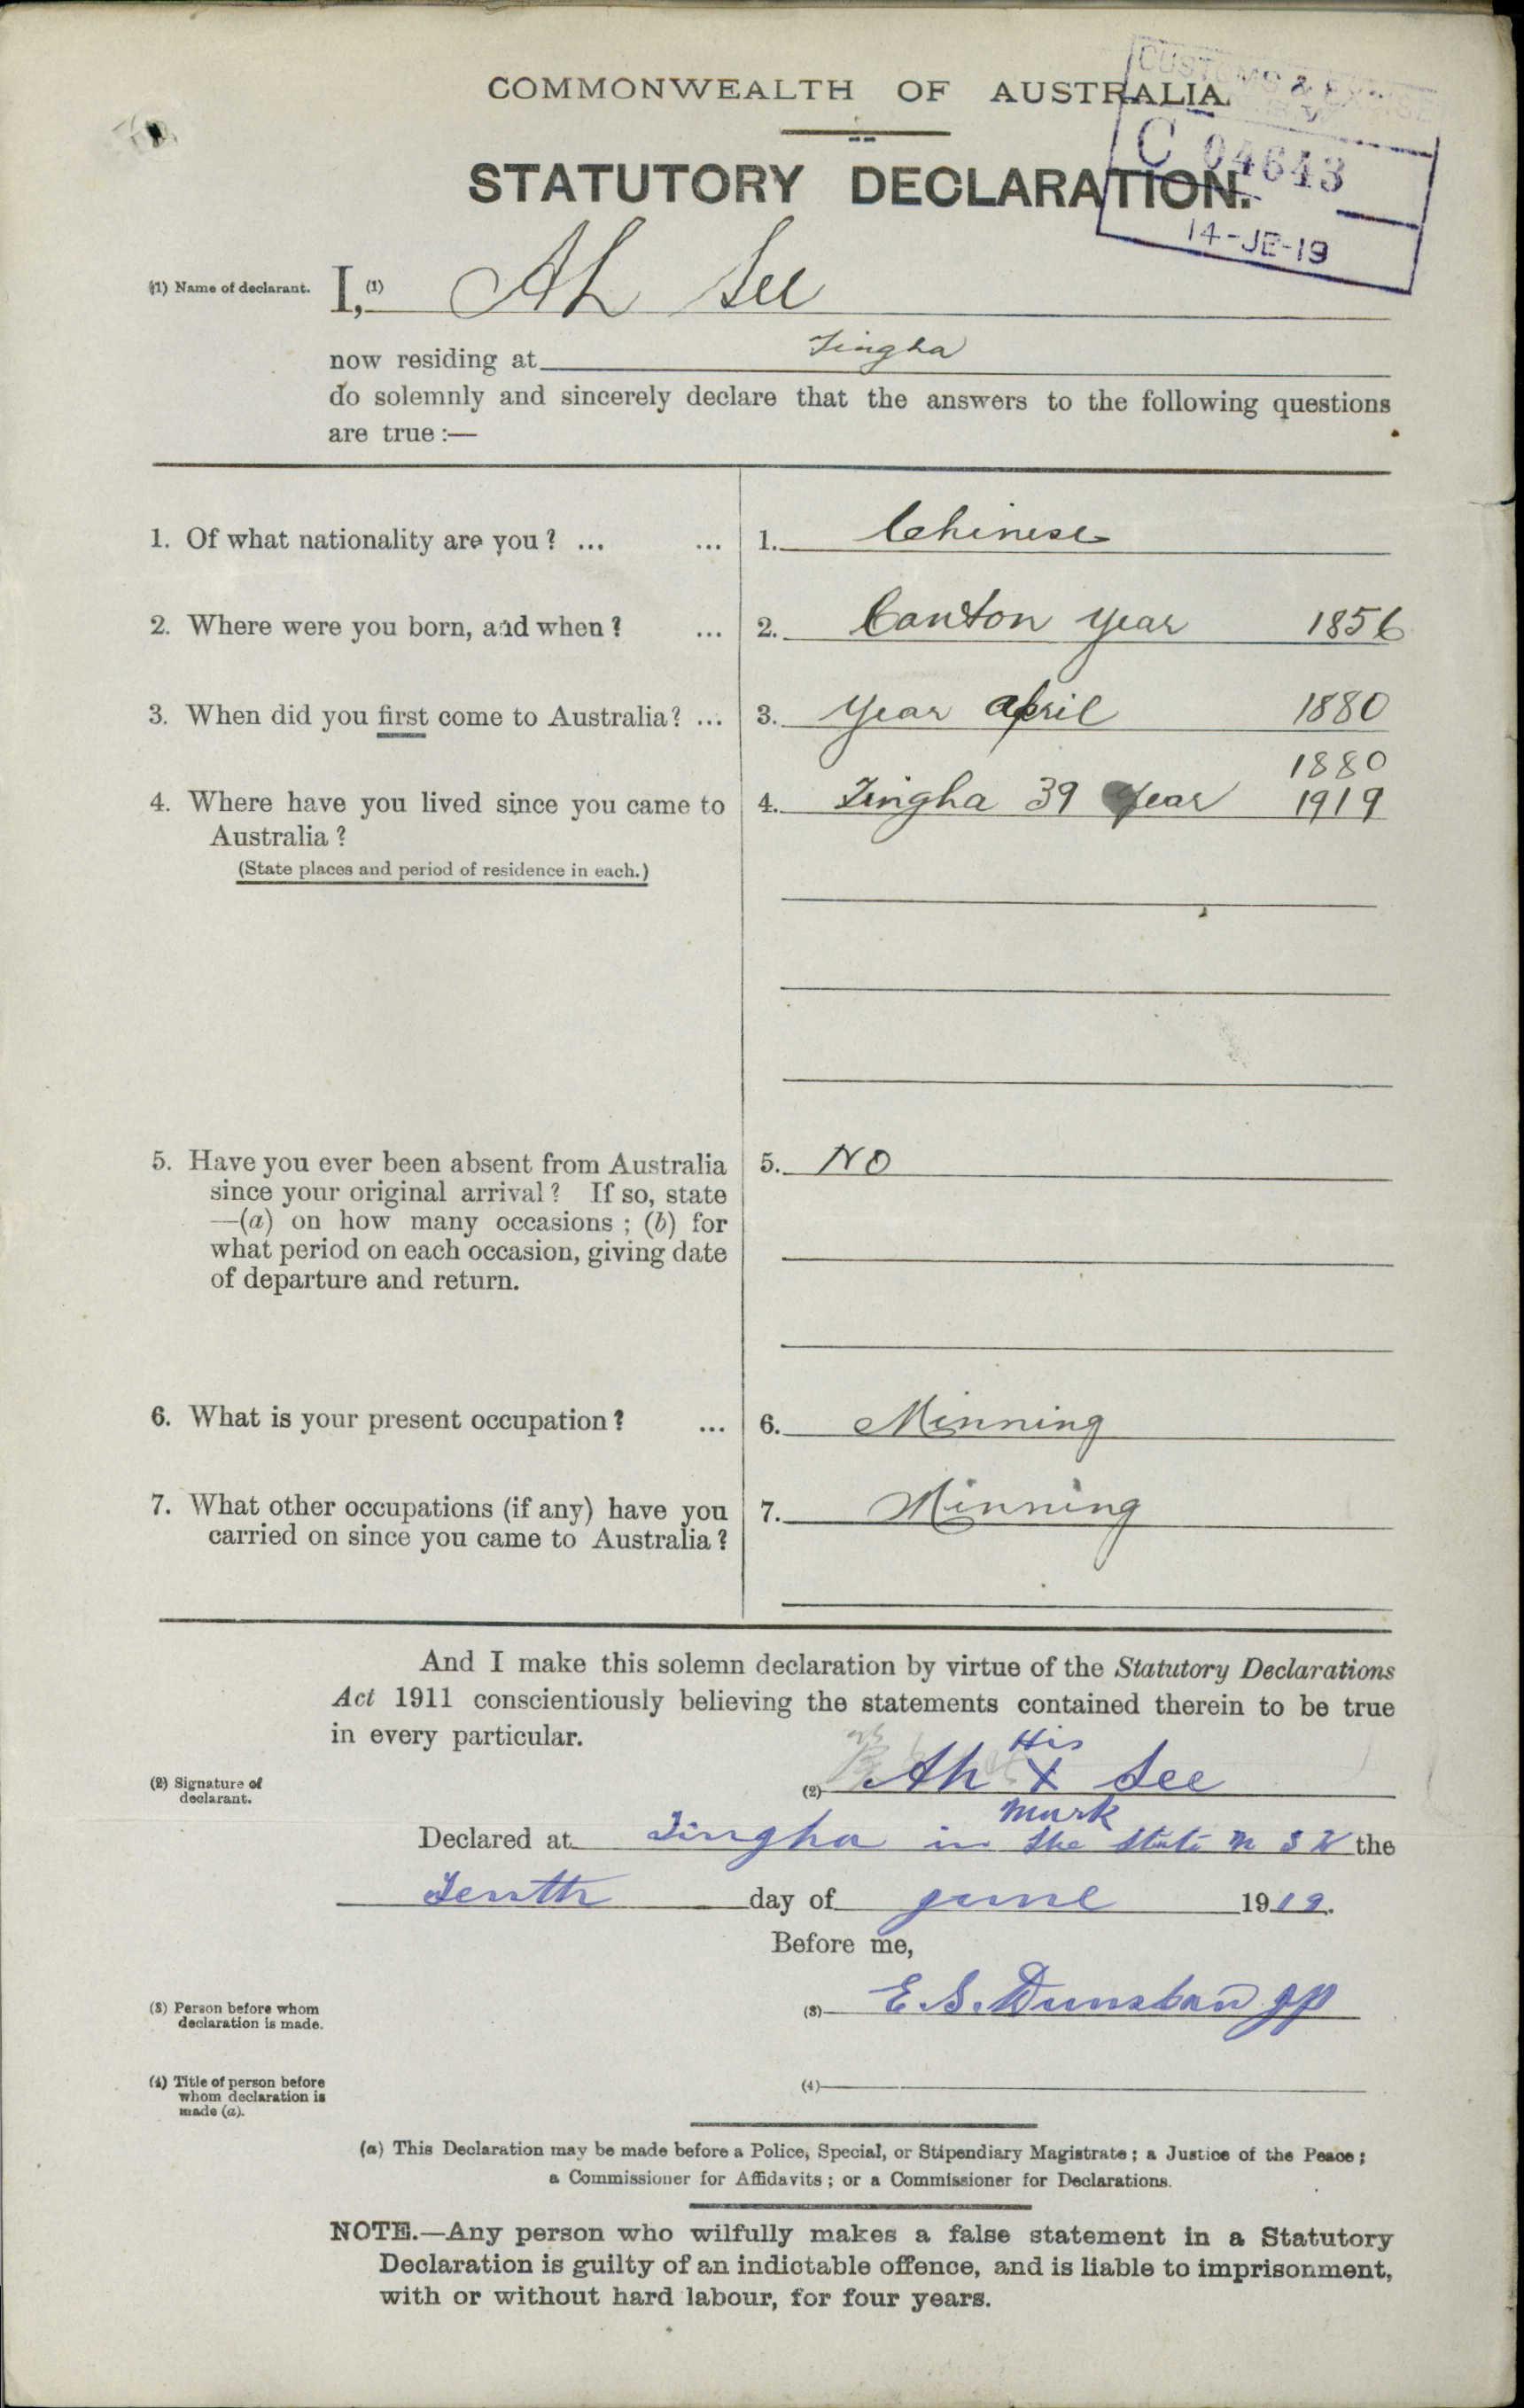 CUSTOMS & EXCISE
COMMONWEALTH OF AUSTRALIA.
C 04643
STATUTORY DECLARATION.
14-JE-19
(1) Name of declarant. I, (1) Ah See
now residing at Tingha
do solemnly and sincerely declare that the answers to the following questions
are true :—
1. Of what nationality are you ? ... ... 1. Chinese
2. Where were you born, and when ? ... 2. Canton year 1856
3. When did you first come to Australia? ... 3. Year april 1880
1880
4. Where have you lived since you came to 4. Tingha 39 year 1919
Australia ?
(State places and period of residence in each.)
5. Have you ever been absent from Australia 5. NO
since your original arrival ? If so, state
—(a) on how many occasions ; (b) for
what period on each occasion, giving date
of departure and return.
6. What is your present occupation ? ... 6. Minning
7. What other occupations (if any) have you 7. Minning
carried on since you came to Australia ?
And I make this solemn declaration by virtue of the Statutory Declarations
Act 1911 conscientiously believing the statements contained therein to be true
in every particular.
His
(2) Signature of declarant. (2) Ah X See
mark
Declared at Tingha in the State N S W the
Tenth day of june 1919.
Before me,
(3) Person before whom declaration is made. (3) E. S. Dunstan JP
(4) Title of person before whom declaration is made (a). (4)
(a) This Declaration may be made before a Police, Special, or Stipendiary Magistrate ; a Justice of the Peace ;
a Commissioner for Affidavits ; or a Commissioner for Declarations.
NOTE.—Any person who wilfully makes a false statement in a Statutory
Declaration is guilty of an indictable offence, and is liable to imprisonment,
with or without hard labour, for four years.